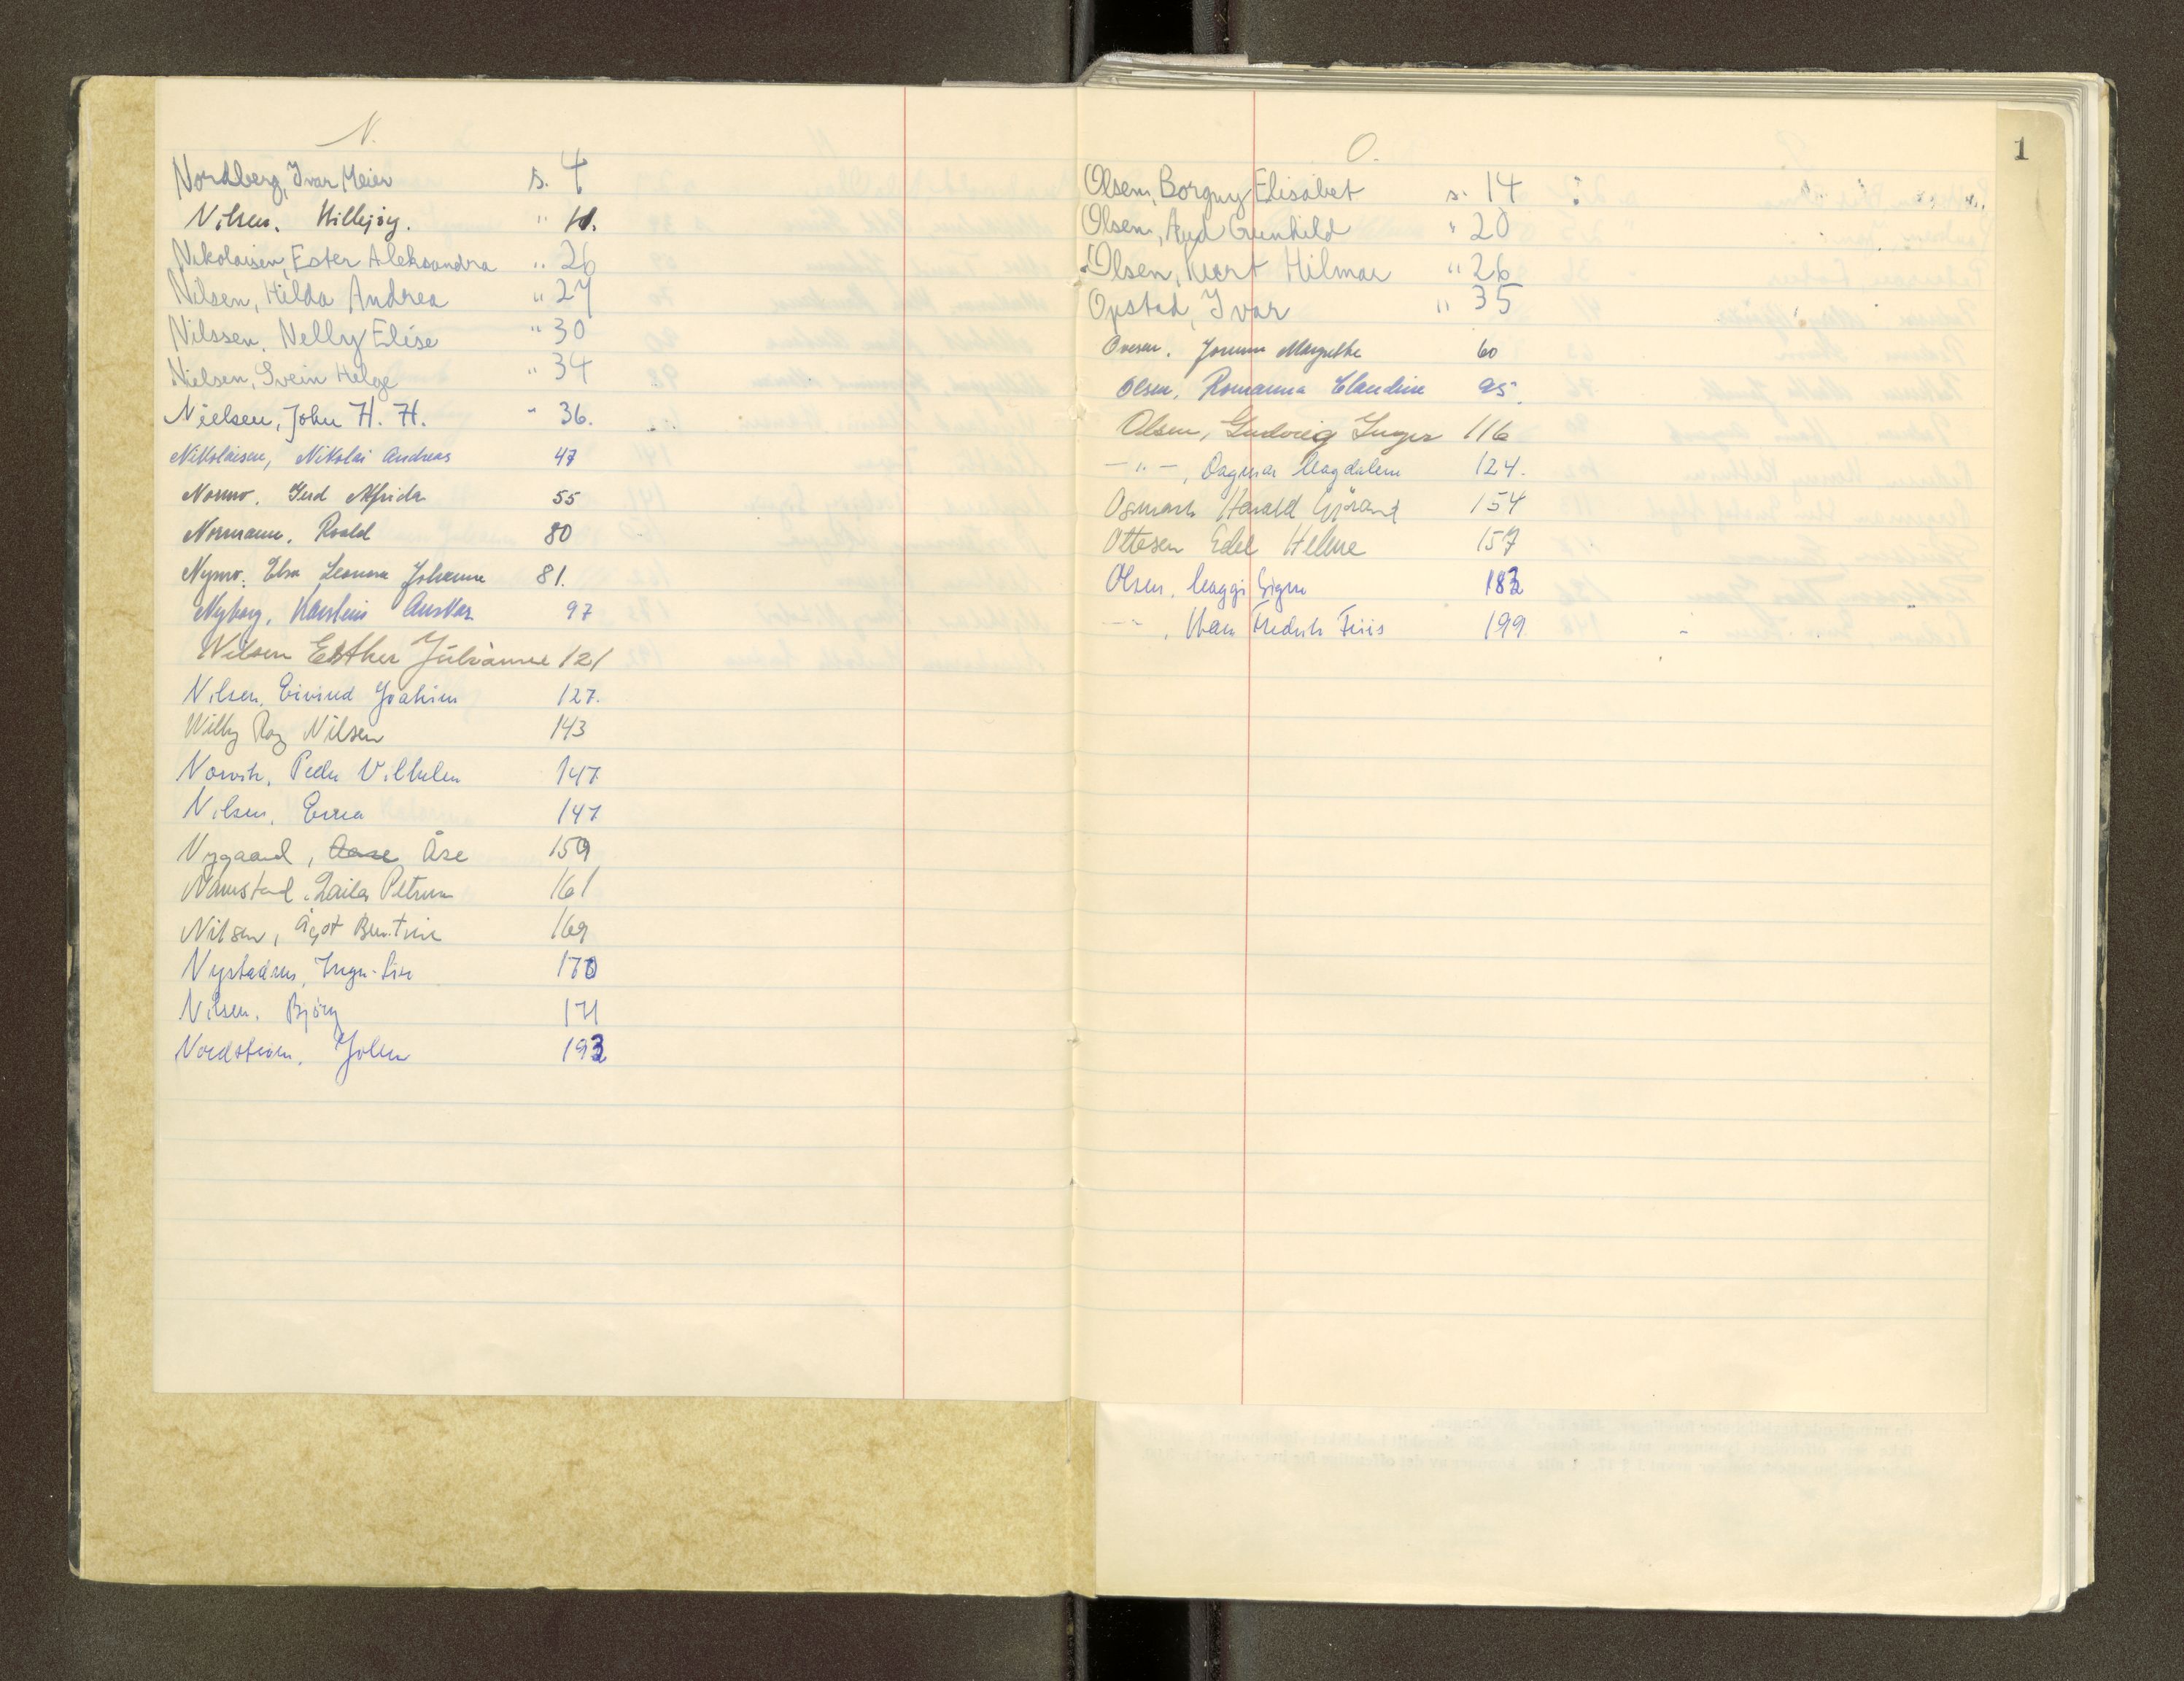 N.
Nordberg, Ivar Meier s. 4
Nilsen. Hillbjørg. " 11.
Nikolaisen, Ester Aleksandra " 26
Nilsen, Hilda Andrea " 27
Nilssen, Nelly Elise " 30
Nielsen, Svein Helge " 34
Nielsen, John H. H. " 36.
Nikolaisen, Nikolai Andreas 47
Normo. Gud Alfrida 55
Normann. Roald 80
Nymo. Elsa Leonora Johanne 81.
Nyborg, Karstein Anskar 97
Nilsen Esther Julianne 121
Nilsen, Eivind Joakim 127.
Willy Roy Nilsen 143
Norvik. Peder Vilhelm 147
Nilsen. Erna 147
Nygaard, Aase Åse 159
Namstad. Laila Petrine 161
Nilsen, Ågot Bentine 169
Nystadnes, Inger-Liv 170
Nilsen. Bjørg 171
Nordstrøm. John 193
O.
1
Olsen, Borgny Elisabet s. 14
Olsen, Aud Gunhild " 20
Olsen, Kurt Hilmar " 26
Opstad, Ivar " 35
Ovesen. Jorunn Margrethe 60
Olsen, Romanna Claudine 95.
Olsen, Ludvig Inger 116
- " -, Dagmar Magdalene 124.
Osmark Harald Gjørand 154
Ottesen Edel Helene 157
Olsen. Maggi Signe 183
- " -, Hans Fredrik Friis 199